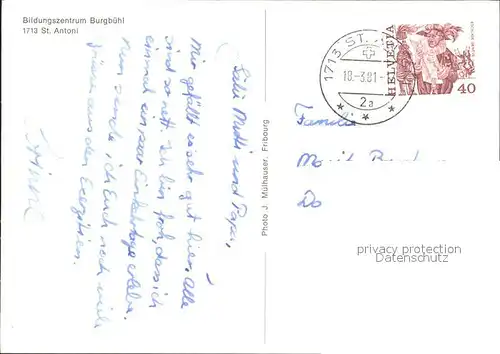 Bildungszentrum Burgbühl
1713 St. Antoni
Liebi Mutti und Papa,
Mir gefällt es sehr gut hier. Alle
sind so nett. Ich bin froh, dass ich
einmal ein paar Einkehrtage erlebe.
Nun sende ich Euch noch viele
Grüsse aus den Exerzitien.
Photo J. Mülhauser, Fribourg
1713 ST.
18.-3.81-
2a
HELVETIA
40
Familie
Do
privacy protection
Datenschutz